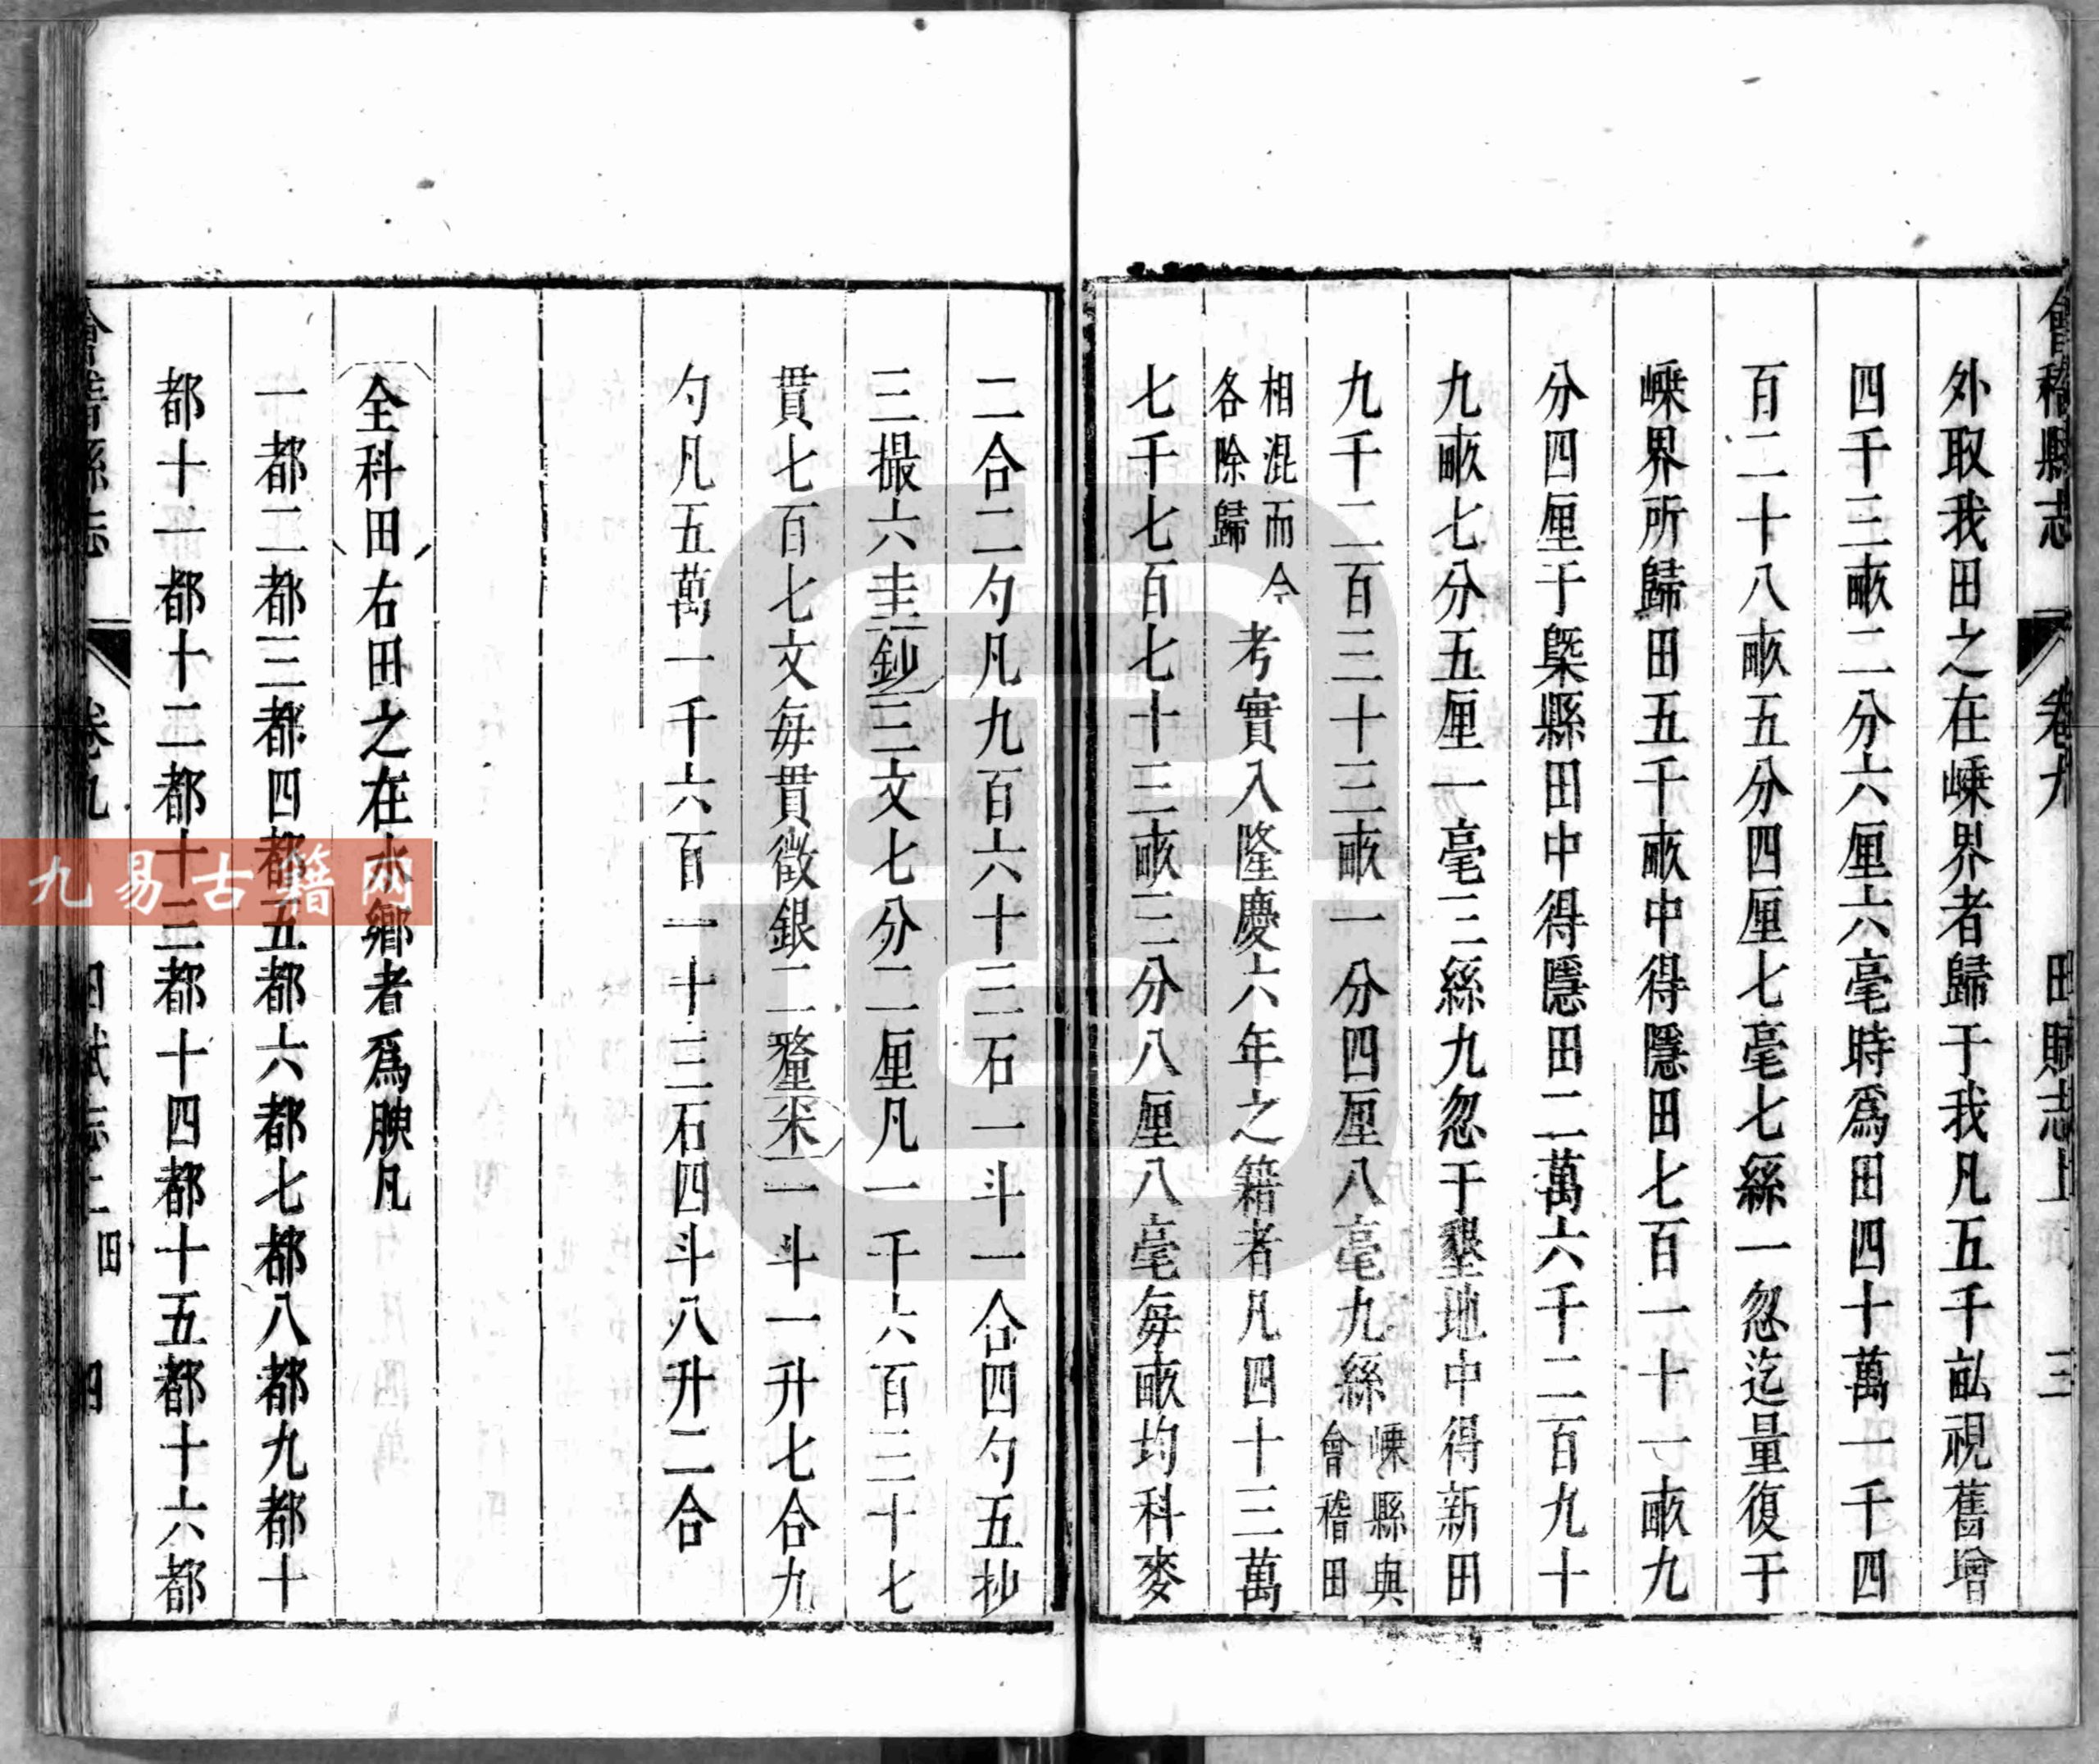 會稽縣志 卷九 田賦志上 三
外取我田之在嵊界者歸于我凡五千畆視舊增
四千三畝二分六厘六毫時爲田四十萬一千四
百二十八畝五分四厘七毫七絲一忽迄量復于
嵊界所歸田五千畝中得隱田七百一十一畝九
分四厘于槩縣田中得隱田二萬六千二百九十
九畝七分五厘一毫三絲九忽于墾地中得新田
九千二百三十三畝一分四厘八毫九絲嵊縣與會稽田
相混而今各除歸考實入隆慶六年之籍者凡四十三萬
七千七百七十三畝三分八厘八毫每畝均科麥
二合二勺凡九百六十三石一斗一合四勺五抄
三撮六圭鈔三文七分二厘凡一千六百三十七
貫七百七文每貫徵銀二釐米一斗一升七合九
勺凡五萬一千六百一十三石四斗八升二合
全科田右田之在水鄉者爲腴凡
一都二都三都四都五都六都七都八都九都十
都十一都十二都十三都十四都十五都十六都
會稽縣志 卷九 田賦志上 田 四
九易古籍网